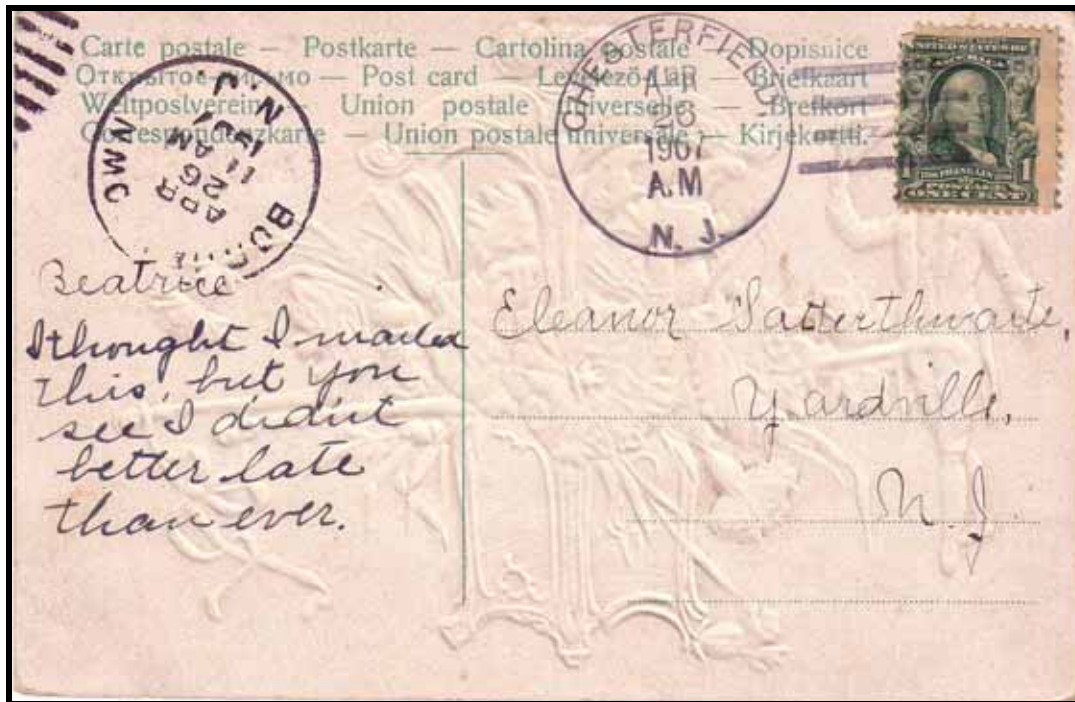 Carte postale — Postkarte — Cartolina postale — Dopisnice
Открытое письмо — Post card — Levelező-Lap — Briefkaart
Weltpostverein — Union postale universelle — Brefkort
Correspondenzkarte — Union postale universale — Kirjekortti.
N.J.
APR
26
11 AM
OWN
BOR
CHESTERFIELD,
APR
26
1907
A.M
N. J.
UNITED STATES OF
AMERICA
FRANKLIN
POSTAGE
1 1
ONE CENT
Beatrice
I thought I mailed
this, but you
see I didnt
better late
than ever.
Eleanor Satterthwaite,
Yardville,
N.J.